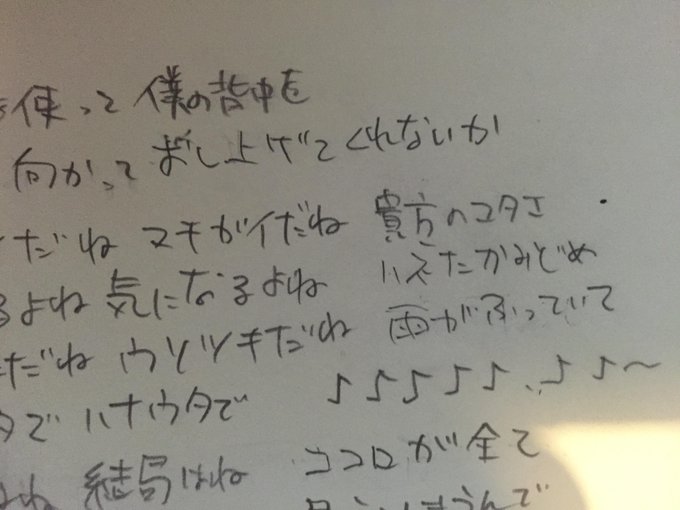 使って 僕の背中を
向かって 押し上げてくれないか
だね マチガイだね 貴方のコタエ
るよね 気になるよね ハズたかみどめ
だね ウソツキだね 雨がふっていて
タで ハナウタで ♪♪♪♪♪、♪♪〜
よね 結局はね ココロが全て